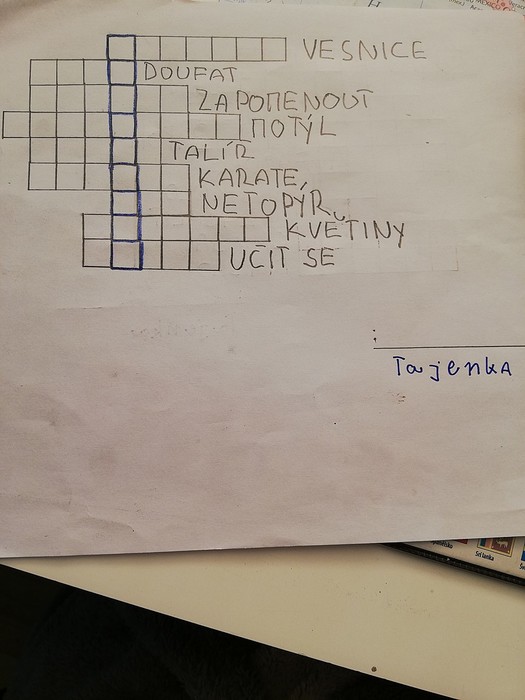 VESNICE
DOUFAT
ZAPOMENOUT
MOTÝL
TALÍŘ
KARATE,
NETOPÝR
KVĚTINY
UČIT SE
:
Tajenka
Srí lanka